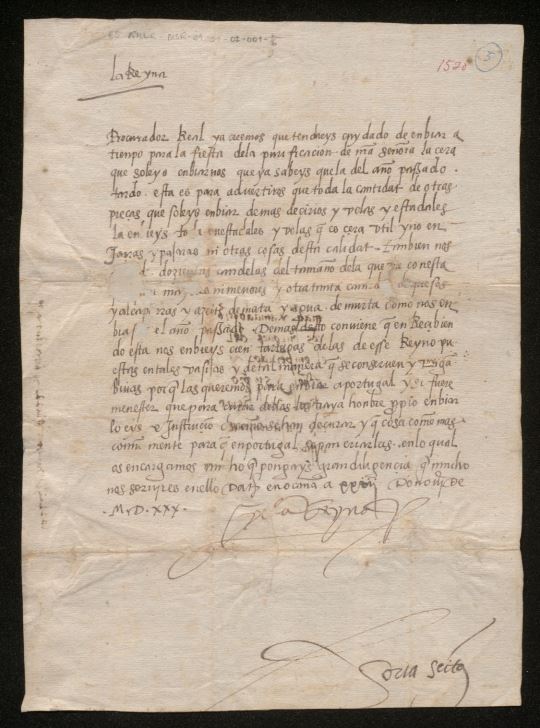 1520
5
la Reyna
Procurador Real ya creemos que tendreys cuydado de enbiar a
tienpo para la fiesta dela purificacion de nra señora la cera
que soleys enbiarnos que ya sabeys que la del año passado
tardo. esta es para advertiros que toda la cantidad de otras
pieças que soleys enbiar demas de cirios y velas y estadales
la en en estadales y velas q es cera util y no en
Jarras y pajaras ni otras cosas desta calidad. tambien nos
candelas del tamaño dela que ya con esta
y otra tanta de quesos
y alcaparras y de murta como nos en
el año passado Demas desto conviene q en Recibien
do esta nos enbieys cien tortugas delas de esse Reyno pu
estas en tales vasijas y de tal manera q se conserven y
bivas porq las queremos para enbiar a portugal y si fuere
menester que para cuidar dellas las traya honbre propio enbiar
lo eys e Instrucio como se han de curar y q cosa comen mas
comun mente para q en portugal sepan criarlas. en lo qual
os encargamos mucho q pongays gran diligencia q mucho
nos servires en ello Dat en ocaña a de
M D XXX
yo la Reyna